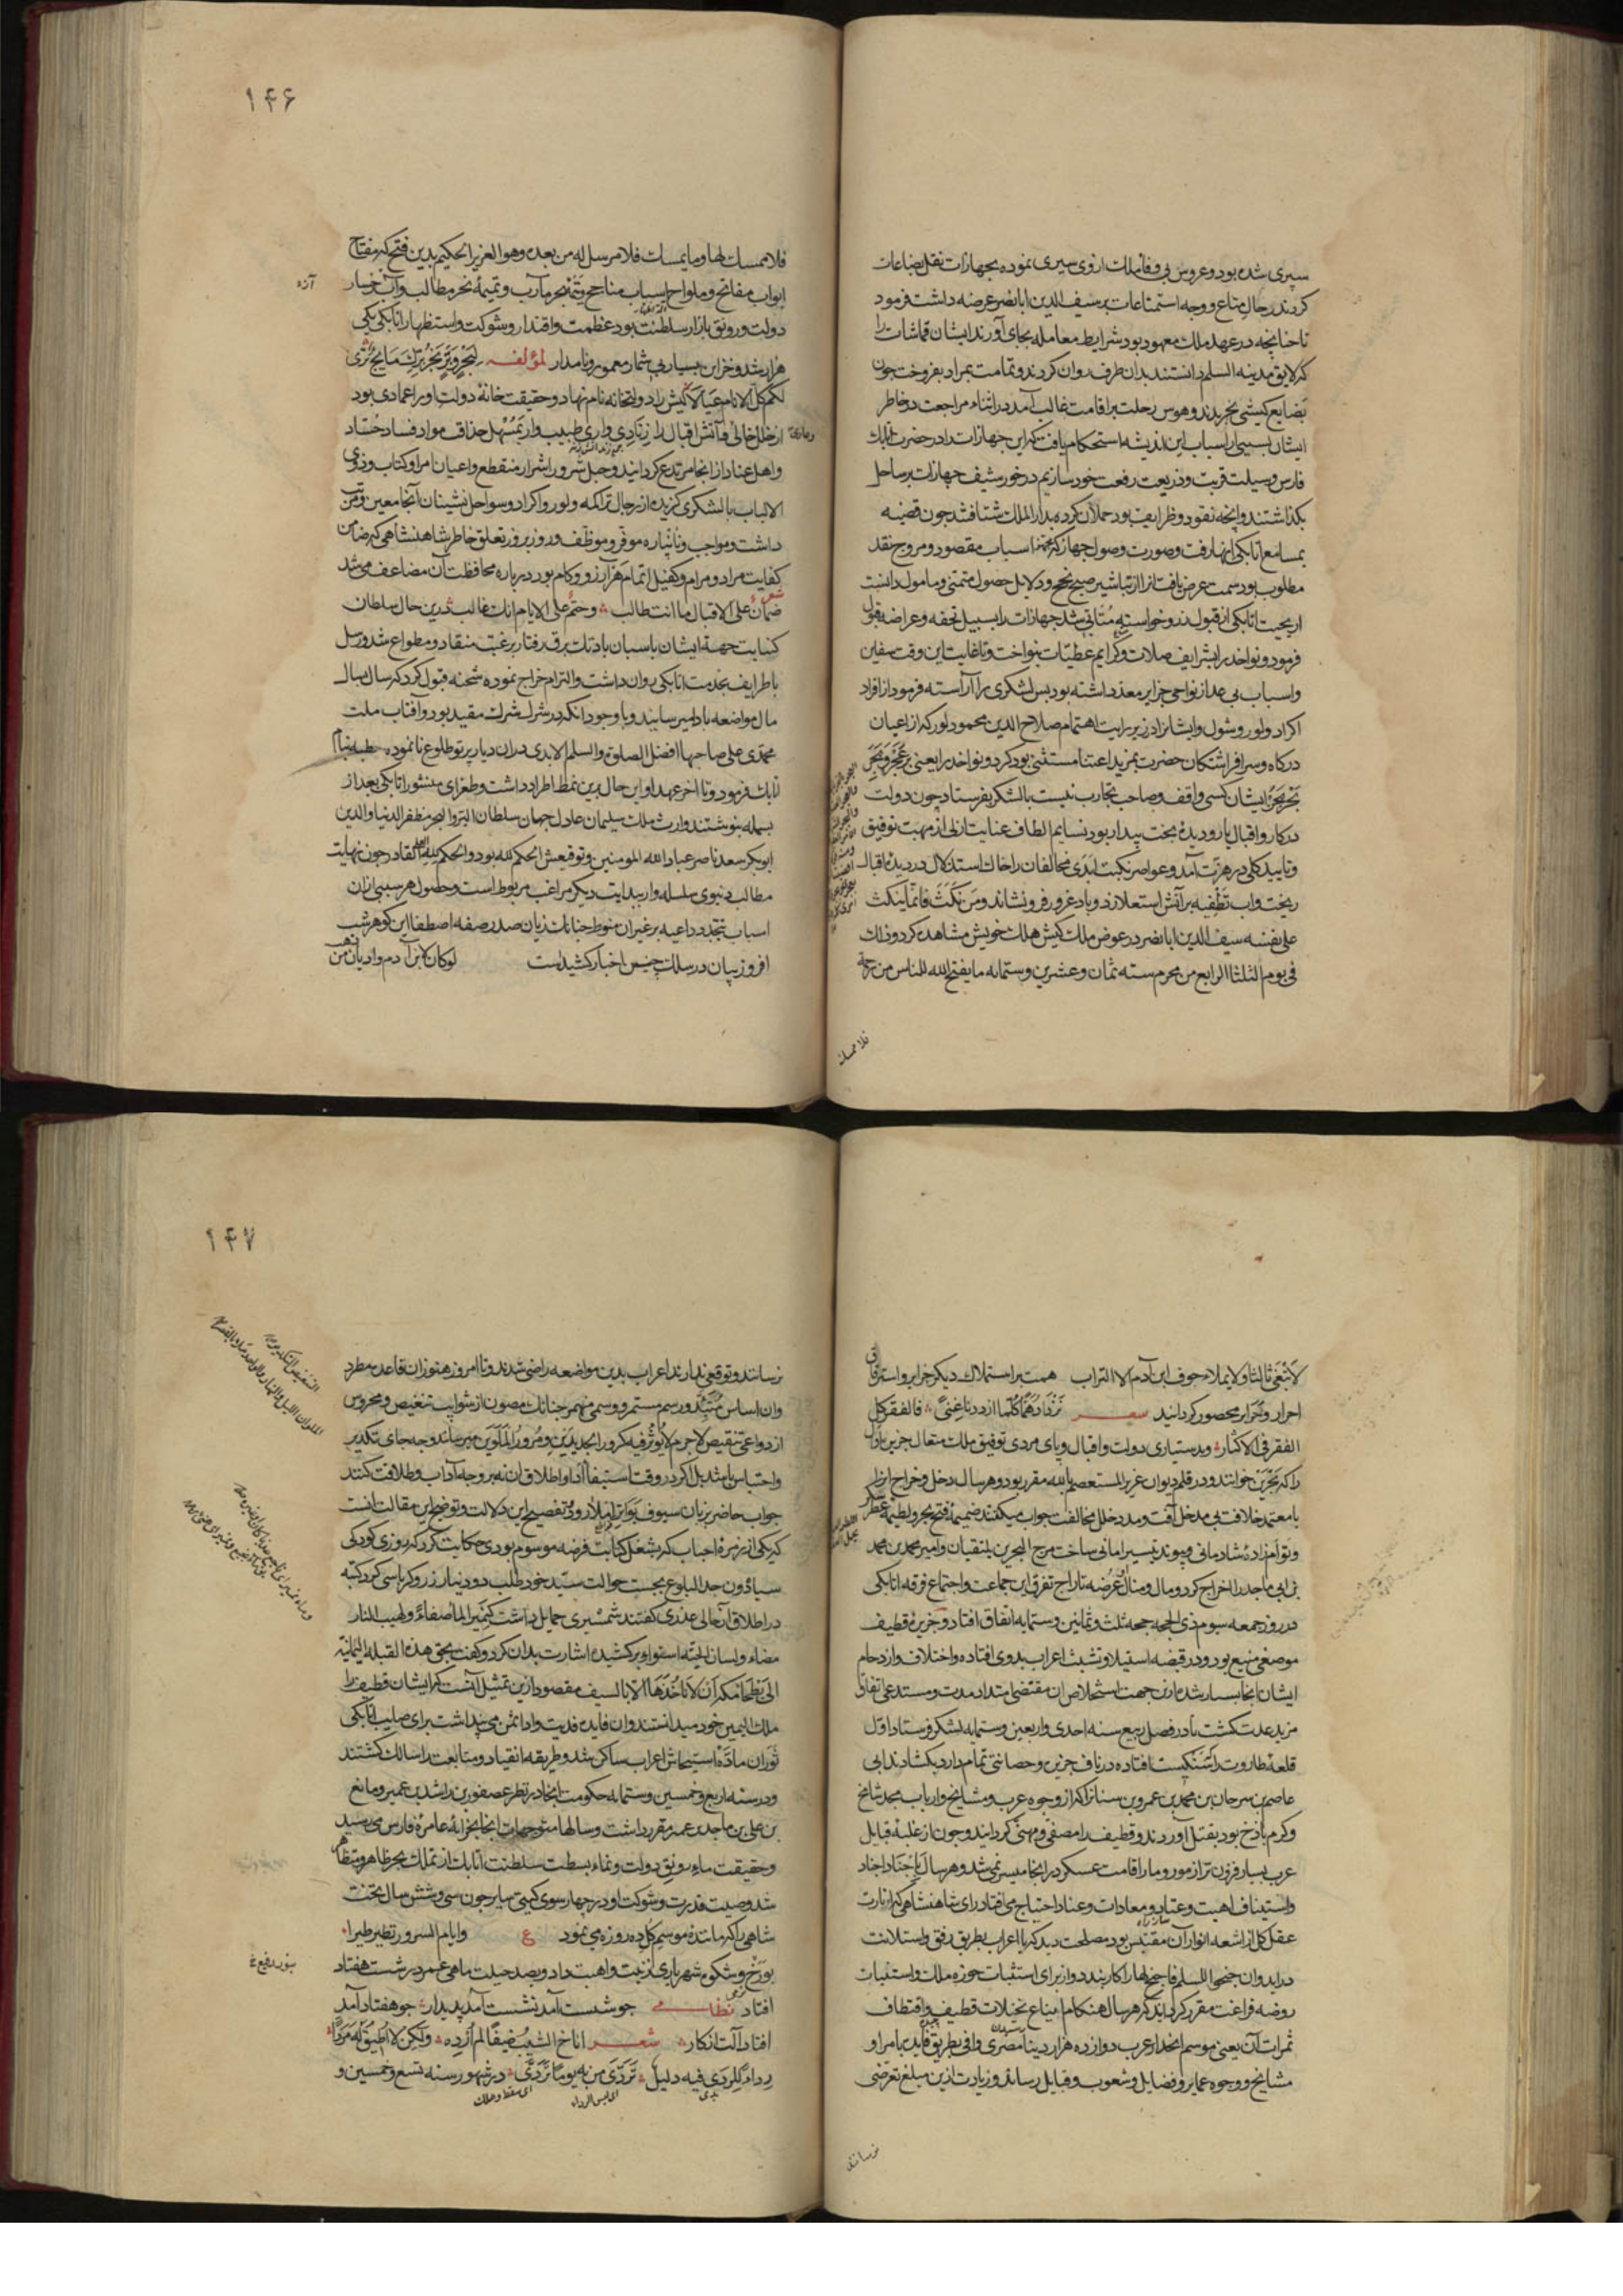 سپری شده بود و عروس بی وفا ملک از وی سیری نموده بجهازات نقل بضاعات
کردند در حال متاع و وجه استمتاعات بر سیف الدین ابا نصر عرضه داشت فرمود
تا چنانچه در عهد ملک معهود بود شرایط معامله بجای آورند ایشان قماشات را
که لایق مدینه السلم دانستند بدان طرف روان کردند و تمامت بمراد بفروخت چون
بضایع کیشی بخریدند و هوس رحلت بر اقامت غالب آمد در اثناء مراجعت در خاطر
ایشان بسببی از اسباب این اندیشه استحکام یافت که این جهازات را در حضرت اتابک
فارس وسیلت قربت و ذریعت رفعت خود سازیم در خور سیف جهازات بر ساحل
بگذاشتند و آنچه نقود و ظرایف بود حملان کرده بدار الملک شتافتند چون قضیه
بمسامع اتابکی انها رفت و صورت وصول جهاز که مجهز اسباب مقصود و مروج نقد
مطلوب بود سمت عرض یافت آنرا از تباشیر صبح نجح و دلایل حصول متمنی و مامول دانست
اریحیت اتابکی از قبول نذر و خواسته متابی شد جهازات را بسبیل تحفه و عراضه قبول
فرمود و نواخد را بشرایف صلات و کرایم عطیات بنواخت و تا غایت این وقت سفاین
و اسباب بی عد از نواحی جزایر معد داشته بود پس لشکری را آراسته فرمود از افراد
اکراد و لور و شول و ایشانرا در زیر رایت اهتمام صلاح الدین محمود لور که از اعیان
درگاه و سر افراشتگان حضرت بمزید اعتنا مستثنی بود کرد و نواخد را یعنی بر عجر و بجر
ایشان کسی واقف و صاحب تجارب نیست با لشکر بفرستاد چون دولت
در کار و اقبال یار و دیدۀ بخت بیدار بود نسایم الطاف عنایت ازلی از مهب توفیق
و تایید کلی در هزت آمد و عواصر نکبت ابدی مخالفان را خاک استذلال در دیدۀ اقبال
ریخت و آب تطفیه بر آتش استعلا زد و باد غرور فرو نشاند و من نکث فانما ینکث
علی نفسه سیف الدین ابا نصر در عوض ملک کیش هلک خویش مشاهده کرد و ذلک
فی یوم الثلثا الرابع من محرم سنه ثمان و عشرین و ستمایه ما یفتح الله للناس من رحمة
فلا ممسک
۱۴۶
فلا ممسک لها و ما یمسک فلا مرسل له من بعده و هو العزیز الحکیم بدین فتح که مفتاح
ابواب مفاتح و ملواح اسباب مناجح و تتمۀ نجر مآرب و تمیمۀ نحر مطالب و آب رخسار
دولت و رونق بازار سلطنت بود عظمت و اقتدار و شوکت و استظهار اتابکی یکی
هزار شد و خزاین بسیار بی شمار معمور و نامدار لمؤلفه
لکم کل الانام عیال کیش را دولتخانه نام نهاد و حقیقت خانۀ دولت او را عمادی بود
از خلل خالی و آتش اقبال را زنادی واری طبیب وار بمسهل حذاقت مواد فساد حساد
و اهل عناد از انجا مرتدع گردانید و حبل شرور اشرار منقطع و اعیان امرا و کتاب و ذوی
الالباب با لشکری گزیده از رجال تراکمه و لور و اکراد و سواحل نشینان آنجا معین و مرتب
داشت و مواجب و نانپاره موفر و موظف و روز بروز تعلق خاطر شاهنشاهی که ضامن
کفایت مراد و مرام و کفیل اتمام هر آرزو و کام بود درباره محافظت آن مضاعف می شد
شعر ضمان علی الاقبال ما انت طالب وحتم علی الایام انک غالب درین حال سلطان
کنبایت جهة ایشان با سبان بادتک برق رفتار برغبت منقاد و مطواع شد و رسل
با طرایف بخدمت اتابکی روان داشت و التزام خراج نموده شحنه قبول کرد که سال بسال
مال مواضعه بادا میرسانید و با وجود آنکه در شرک شرک مقید بود و آفتاب ملت
محمدی علی صاحبها افضل الصلوة و السلم الابدی در آن دیار پرتو طلوع نا نموده خطبه بنام
اتابک فرمود و تا آخر عهد او این حال برین نمط اطراد داشت و طغرای منشور اتابکی بعد از
بسمله بنوشتند وارث ملک سلیمان عادل جهان سلطان البر و البحر مظفر الدنیا و الدین
ابو بکر سعد ناصر عباد الله المومنین و توقیعش الحکم لله بود و الحکم لله العلی القادر چون نهایت
مطالب دنیوی سلسله وار ببدایت دیگر مراغب مربوط است و حصول هر سببی از آن
اسباب بتجدد داعیه بر غیر آن منوط چنانک بر زبان صدر صفه اصطفا این گوهر شب
افروز بیان در سلک چنین اخبار کشیدست لو کان لابن آدم وادیان من ذهب
آزه
۱۴۷
لابتغی ثالثا و لا یملاء جوف ابن آدم الا التراب همت بر استملاک دیگر جزایر و استرقاق
احرار و حرایر محصور گردانید شعر نزداد هما کلما ازددنا غنی فالفقر کل
الفقر فی الاکثار و بدستیاری دولت و اقبال و پای مردی توفیق ملک متعال جزیرۀ اوال
را که بحرین خوانند و در قلم دیوان عزیز المستعصم بالله مقرر بود و هر سال دخل و خراج آنرا
با معتمد خلافت بی مدخل آفت و مدد دخل مخالفت جواب میگفتند ضمیمۀ فتح بحر و لطیمۀ عطر
و توام زاده شادمانی و پیوند تیسیر امانی ساخت مرج البحرین یلتقیان و امیر محمد بن محمد
بن ابی ماجد را اخراج کرد و مال و منال عرضه تاراج تفرق این جماعت و اجتماع فرقه اتابکی
در روز جمعه سیوم ذی الحجه حجه ثلث و ثمانین و ستمایه اتفاق افتاد و جزیرۀ قطیف
موضعی منیع بود و در قبضه استیلا و تشبث اعراب بدوی افتاده و اختلاف و ازدحام
ایشان آنجا بسیار شده ازین جهت استخلاص آن مقتضی امتداد مدت و مستدعی اتفاق
مزید عدت گشت تا در فصل ربیع سنه احدی و اربعین و ستمایه لشکر فرستاد اول
قلعۀ طاروت را سنگیست افتاده در ناف جزیره و حصانتی تمام دارد بگشادند ابی
عاصم بن سرحان بن محمد بن عمرو بن سنانرا که از وجوه عرب و مشایخ و ارباب مجد شامخ
و کرم باذخ بود بقتل آوردند و قطیف را مصفی و مهنی گردانیدند و چون از غلبۀ قبایل
عرب بسیار فزون تر از مور و مار اقامت عسکر در انجا میسر نمی شد و هر سال باجناد اجناد
و استیناف اهبت و عتاد و معادات و عناد احتیاج می افتاد رای شاهنشاهی که انارت
عقل کل از اشعه انوار آن مقتبس بود مصلحت دید که با اعراب بطریق رفق و استلانت
در آید و ان جنحوا للسلم فاجنح لها را کار بندد و از برای استثبات حوزه ملک و استنبات
روضه فراغت مقرر گردانید که هر سال هنگام ایناع نخیلات قطیف و اقتطاف
ثمرات آن یعنی موسم انحدار عرب دوازده هزار دینار مصری وافی بطریق قاید با امرا و
مشایخ و وجوه عمایر و فضایل و شعوب و قبایل رساند و زیادت ازین مبلغ تعرضی
نرسانند
نرسانند و توقعی ندارند اعراب بدین مواضعه راضی شدند و تا امروز هنوز آن قاعده مطرد
و آن اساس ممهد و رسم مستمر و وسمی منهمر چنانک مصون از شوایب تنغیص و محروس
از دواعی تنقیص لا جرم لا یؤثر فیه کرور الجدیدین و مرور الملوین میرسانند و چه جای تکدیر
و احتباس باشد بل اگر در وقت استیفا ادا و اطلاق آن نه بر وجه آداب و طلاقت کنند
جواب حاضر بزبان سیوف بواتر املا رود و تفصیح این دلالت و توضیح این مقالت آنست
که یکی از زمرۀ احباب که بشغل کتابت فرضه موسوم بودی حکایت کرد که روزی کودکی
سیاه دون حد البلوغ بحسب حوالت سید خود طلب دو دینار زر و کرباسی کرد کتبه
در اطلاق آن حالی عذری گفتند شمشیری حمایل داشت کنمیر الماء صفاء و لهیب النار
مضاء و لسان الحیة استواء بر کشیده اشارت بدان کرد و گفت بحق هذه القبلة الیمانیة
الی بطحاء مکة ان لا ناخذها الا بالسیف مقصود ازین تمثیل آنست که ایشان قطیف را
ملک الیمین خود میدانستند و آن فایده فدیت و ادا ثمن می پنداشت برای صلیب اتابکی
ثوران ماده استیحاش اعراب ساکن شد و طریقه انقیاد و متابعت را سالک گشتند
و در سنه اربع و خمسین و ستمایه حکومت آنجا در نظر عصفور بن راشد بن عمیر و مانع
بن علی بن ماجد بن عمیر مقرر داشت و سالها متوجهات آنجا بخزانۀ عامرۀ فارس می رسید
و حقیقت ماء رونق دولت و نماء بسطت سلطنت اتابک از تملک بحر ظاهر و متظاهر
شد و صیت قدرت و شوکت او در چهار سوی گیتی سایر چون سی و شش سال تخت
شاهی را که مانند موسم گل ده روزه می نمود ع و ایام السرور تطیر طیرا
بورخ و شکوه شهریاری زینت و اهبت داد و بصد حیلت ماهی عمر در شست هفتاد
افتاد نظامی چو شست آمد نشست آمد پدیدار چو هفتاد آمد
افتاد آلت از کار شعر اناخ الشیب ضیفا لم ارده ولکن لا اطیق له مردا
رداء للردی فیه دلیل تردی من به یوما تردی در شهور سنه تسع و خمسین و
ای لبس الرداء
ای سقط و هلک